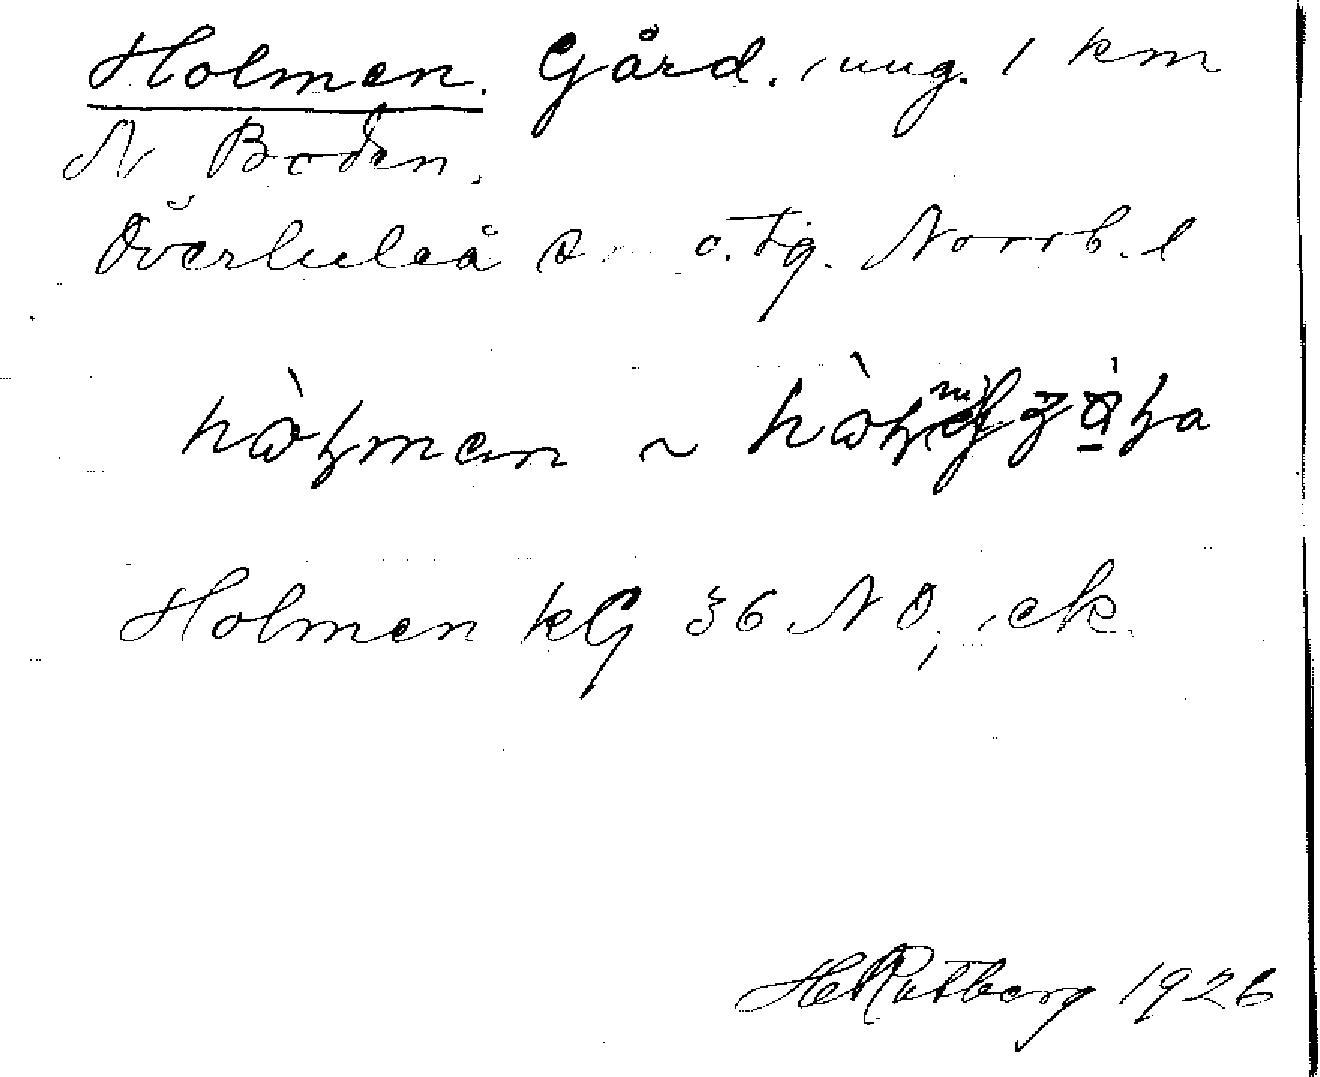 Holmen. Gård. ung. 1 km
N Boden.
Överluleå sn o. tg. Norrb. l
hòlmen ~
Holmen kG 36 NO, ek.
H Rutberg 1926